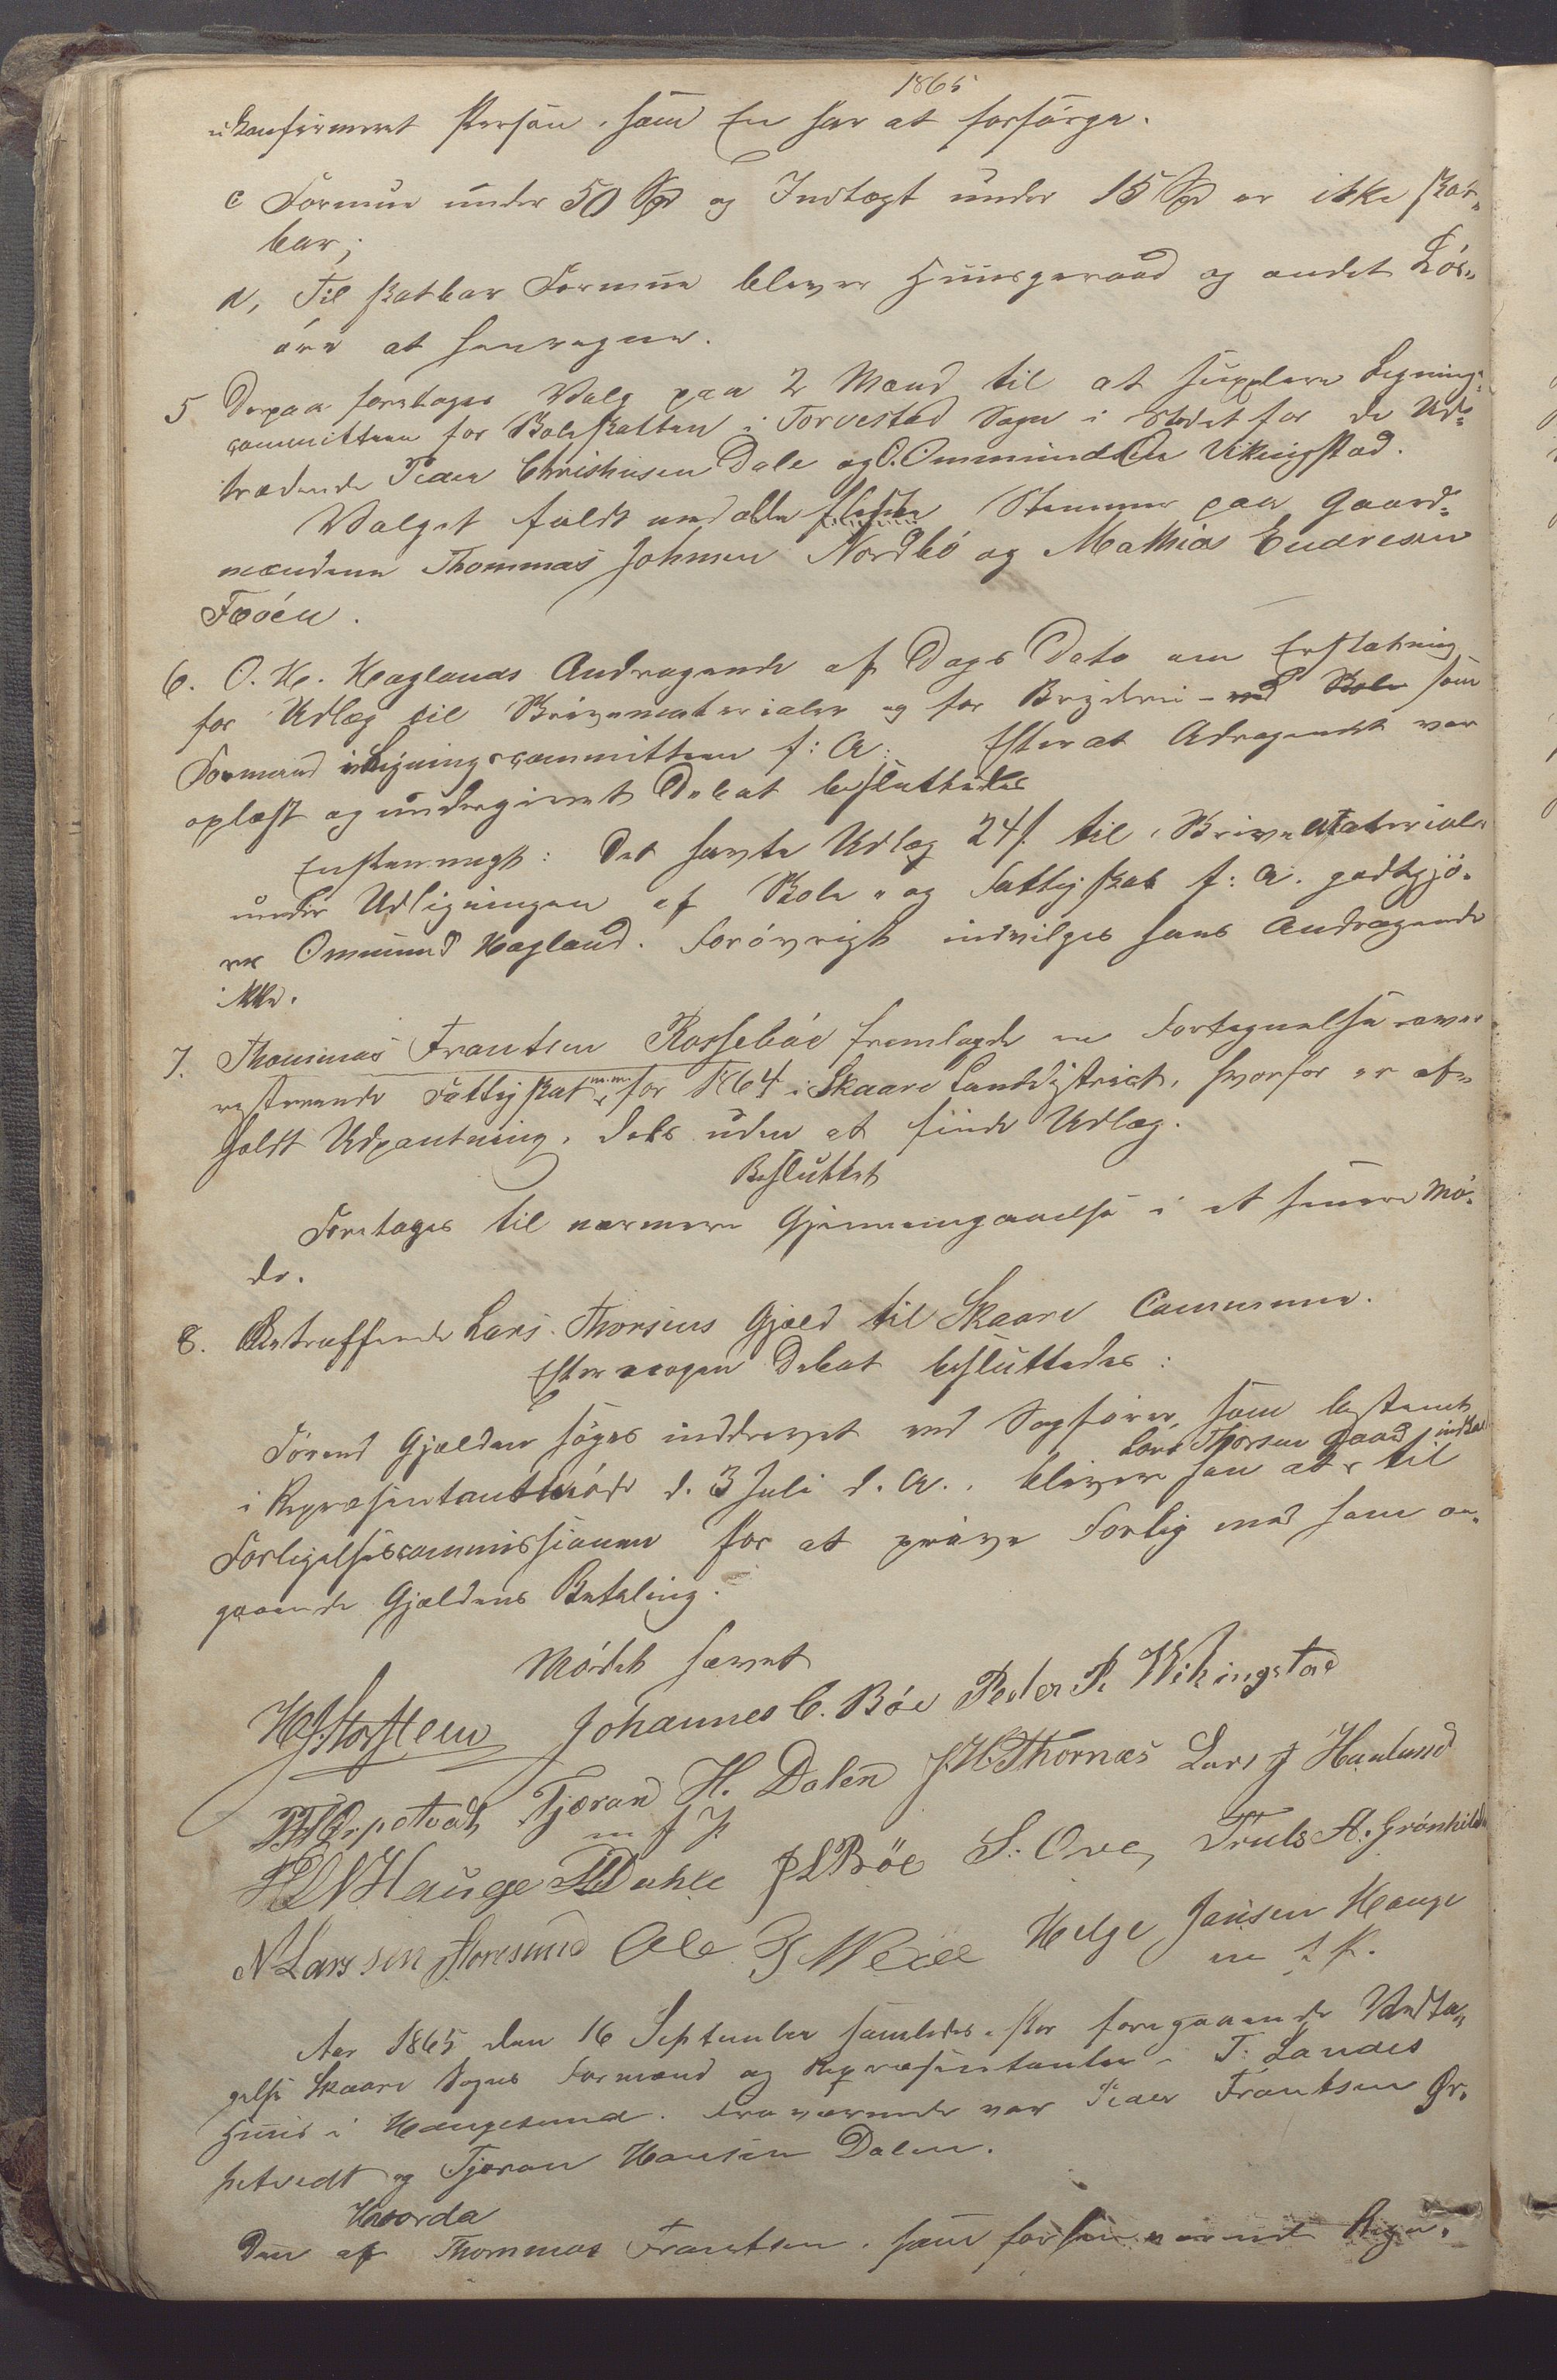 1865
ukonfirmeret Person, som En har at forsørge.
c Formue under 50 Spd og Indtægt under 15 Spd er ikke skat-
bar;
d, Til skatbar Formue bliver Huusgeraad og andet Lös-
öre at henregne.
5 Derpaa foretoges Valg paa 2 Mænd til at supplere Ligning-
scommitteen for Skoleskatten i Torvestad Sogn i Stedet for de Ud-
trædende Peder Christiansen Dale og O. Ommundsen Vikingstad.
Valget faldt med alle Stemmer paa Gaard-
mændene Thommas Johnsen Nordbö og Mathias Endresen
Fæöen.
6. O. H. Haglands Andragende af Dags Dato om Erstatning
for Udlæg til Skrivematerialer og for Bryderi - ved Skole som
Formand i Ligningscommitteen f: A: Efterat Adragendet var
oplæst og undergivet Debat besluttedes
Enstemmigt: Det havte Udlæg 24 s. til Skrivematerialer
under Udligningen af Skole- og Fattigskat f: A. godtgjö-
res Ommund Hagland. Forövrigt indvilges hans Andragende
ikke.
7. Thommas Frantsen Rosseböe fremlagde en Fortegnelse over
resterende Fattigskat m.m. for 1864 i Skaare Landdistrict, hvorfor er af-
holdt Udpantning, dels uden at finde Udlæg.
Besluttet
Foretages til nærmere Gjennemgaaelse i et senere Mö-
de.
8. Betræffende Lars Thorsens Gjæld til Skaare Commune.
Efter nogen Debat besluttedes:
Førend Gjælden søges inddrevet ved Sagförer, som bestemt
Lars Thorsen Gaard indkal
i Repræsentantmöde d. 3 Juli d. A., bliver han at til
Forligelsescommissionen for at pröve Forlig med ham an-
gaaende Gjældens Betaling.
Mödet hævet
H J Storstein Johannes C. Böe Peder P. Wikingstad
P F Ørpetvedt Tjeran H. Dalen J. K. Thornæs Lars J Haaland
m f P
H N Hauge Dahle J L Böe S. Ove, Truls A. Grönhild
N Larssen Floresund Ole T Mæle Helge Jansen Hauge
m f P.
Aar 1865 den 16 September samledes efter foregaaende Vedta-
gelse Skaare Sogns Formænd og Repræsentanter i T. Landes
Huus i Haugesund. Fraværende var Peder Frantsen Ør-
petvedt og Tjeran Hansen Dalen.
Hvorda
Den af Thommas Frantsen, som forhenværende Regn-